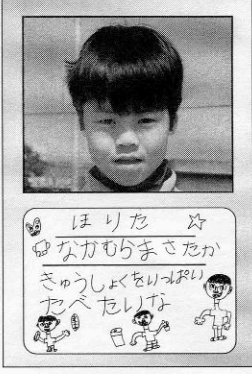 ほりた
なかむらまさたか
きゅうしょくをいっぱい
たべたいな